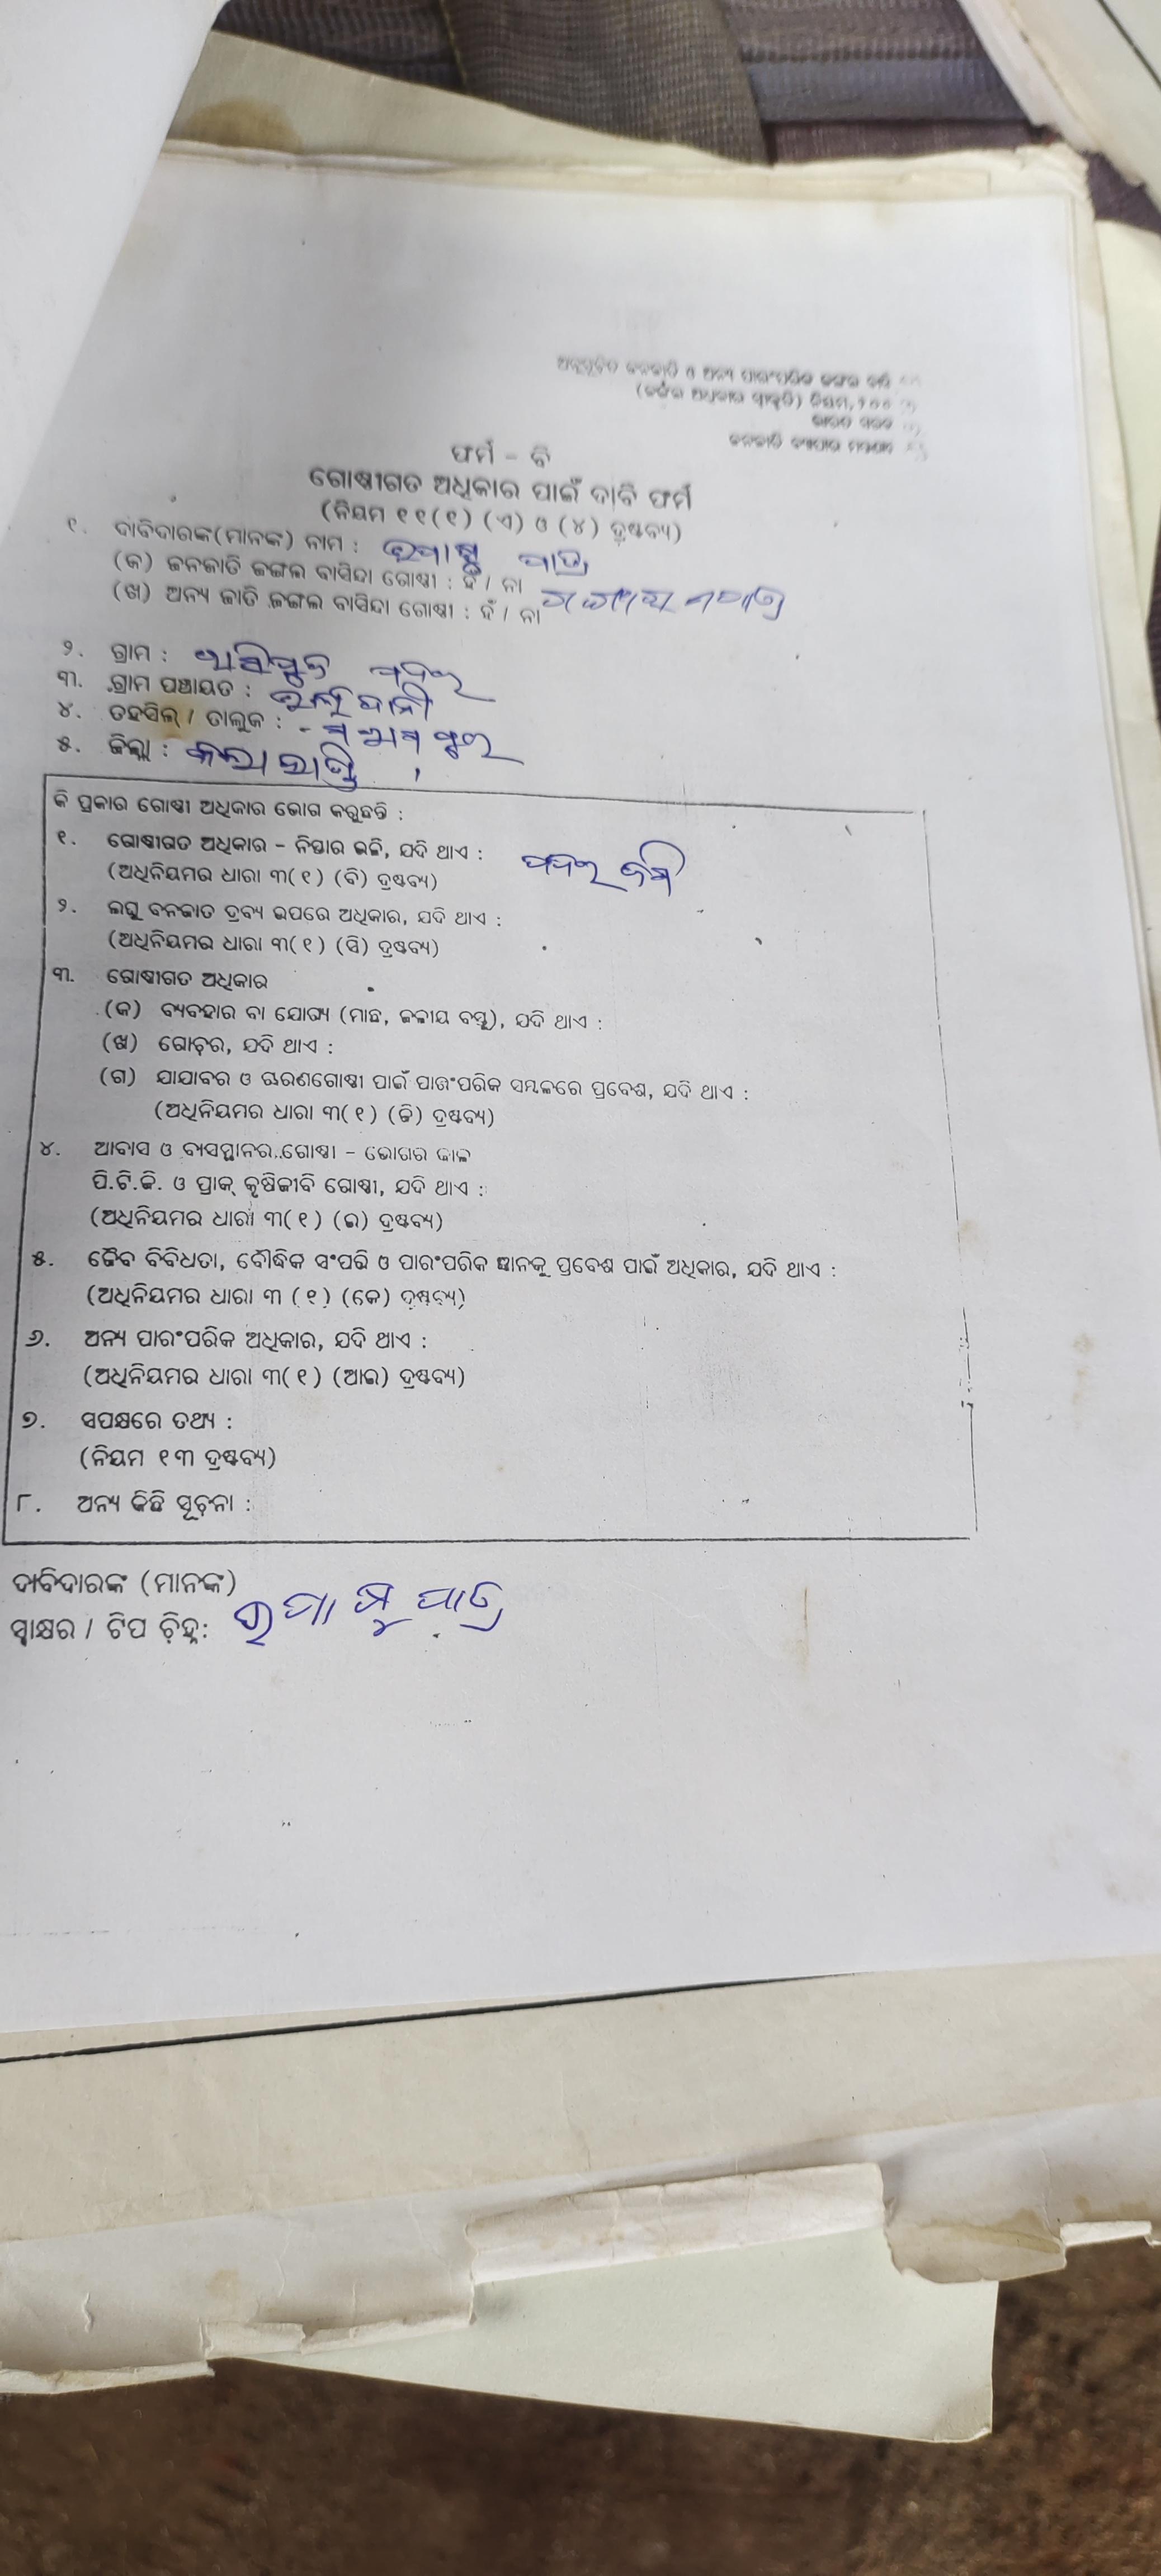 ଅନୁସୂଚିତ ଜନଜାତି ଓ ଅନ୍ୟ ପାରଂପରିକ ଜଙ୍ଗଲ
(ଜଙ୍ଗଲ ଅଧିକାର ସ୍ୱୀକୃତି) ନିୟମ, ୨୦୦
ଭାରତ
ଜନଜାତି ବ୍ୟାପାର
ଫର୍ମ - ବି
ଗୋଷ୍ଠୀଗତ ଅଧିକାର ପାଇଁ ଦାବି ଫର୍ମ
(ନିୟମ ୧୧(୧) (ଏ) ଓ (୪) ଦ୍ରଷ୍ଟବ୍ୟ)
୧. ଦାବିଦାରଙ୍କ(ମାନଙ୍କ) ନାମ : ପାତ୍ର
(କ) ଜନଜାତି ଜଙ୍ଗଲ ବାସିନ୍ଦା ଗୋଷ୍ଠୀ : ହଁ / ନା
(ଖ) ଅନ୍ୟ ଜାତି ଜଙ୍ଗଲ ବାସିନ୍ଦା ଗୋଷ୍ଠୀ : ହଁ / ନା
୨. ଗ୍ରାମ :
୩. ଗ୍ରାମ ପଞ୍ଚାୟତ :
୪. ତହସିଲ୍ / ତାଲୁକ :
୫. ଜିଲ୍ଲା : କଳାହାଣ୍ଡି
କି ପ୍ରକାର ଗୋଷ୍ଠୀ ଅଧିକାର ଭୋଗ କରୁଛନ୍ତି :
୧. ଗୋଷ୍ଠୀଗତ ଅଧିକାର - ନିସ୍ତାର ଭଳି, ଯଦି ଥାଏ :
(ଅଧିନିୟମର ଧାରା ୩(୧) (ବି) ଦ୍ରଷ୍ଟବ୍ୟ)
୨. ଲଘୁ ବନଜାତ ଦ୍ରବ୍ୟ ଉପରେ ଅଧିକାର, ଯଦି ଥାଏ :
(ଅଧିନିୟମର ଧାରା ୩(୧) (ସି) ଦ୍ରଷ୍ଟବ୍ୟ)
୩. ଗୋଷ୍ଠୀଗତ ଅଧିକାର
(କ) ବ୍ୟବହାର ବା ଯୋଗ୍ୟ (ମାଛ, ଜଳୀୟ ବସ୍ତୁ), ଯଦି ଥାଏ :
(ଖ) ଗୋଚର, ଯଦି ଥାଏ :
(ଗ) ଯାଯାବର ଓ ଚାରଣଗୋଷ୍ଠୀ ପାଇଁ ପାରଂପରିକ ସମ୍ବଳରେ ପ୍ରବେଶ, ଯଦି ଥାଏ :
(ଅଧିନିୟମର ଧାରା ୩(୧) (ଡି) ଦ୍ରଷ୍ଟବ୍ୟ)
୪. ଆବାସ ଓ ବାସସ୍ଥାନର ଗୋଷ୍ଠୀ - ଭୋଗର କାଳ
ପି.ଟି.ଜି. ଓ ପ୍ରାକ୍ କୃଷିଜୀବି ଗୋଷ୍ଠୀ, ଯଦି ଥାଏ :
(ଅଧିନିୟମର ଧାରା ୩(୧) (ଇ) ଦ୍ରଷ୍ଟବ୍ୟ)
୫. ଜୈବ ବିବିଧତା, ବୌଦ୍ଧିକ ସଂପତ୍ତି ଓ ପାରଂପରିକ ଜ୍ଞାନକୁ ପ୍ରବେଶ ପାଇଁ ଅଧିକାର, ଯଦି ଥାଏ :
(ଅଧିନିୟମର ଧାରା ୩ (୧) (କେ) ଦ୍ରଷ୍ଟବ୍ୟ)
୬. ଅନ୍ୟ ପାରଂପରିକ ଅଧିକାର, ଯଦି ଥାଏ :
(ଅଧିନିୟମର ଧାରା ୩(୧) (ଆଇ) ଦ୍ରଷ୍ଟବ୍ୟ)
୭. ସପକ୍ଷରେ ତଥ୍ୟ :
(ନିୟମ ୧୩ ଦ୍ରଷ୍ଟବ୍ୟ)
୮. ଅନ୍ୟ କିଛି ସୂଚନା :
ଦାବିଦାରଙ୍କ (ମାନଙ୍କ)
ସ୍ୱାକ୍ଷର / ଟିପ ଚିହ୍ନ: ପାତ୍ର